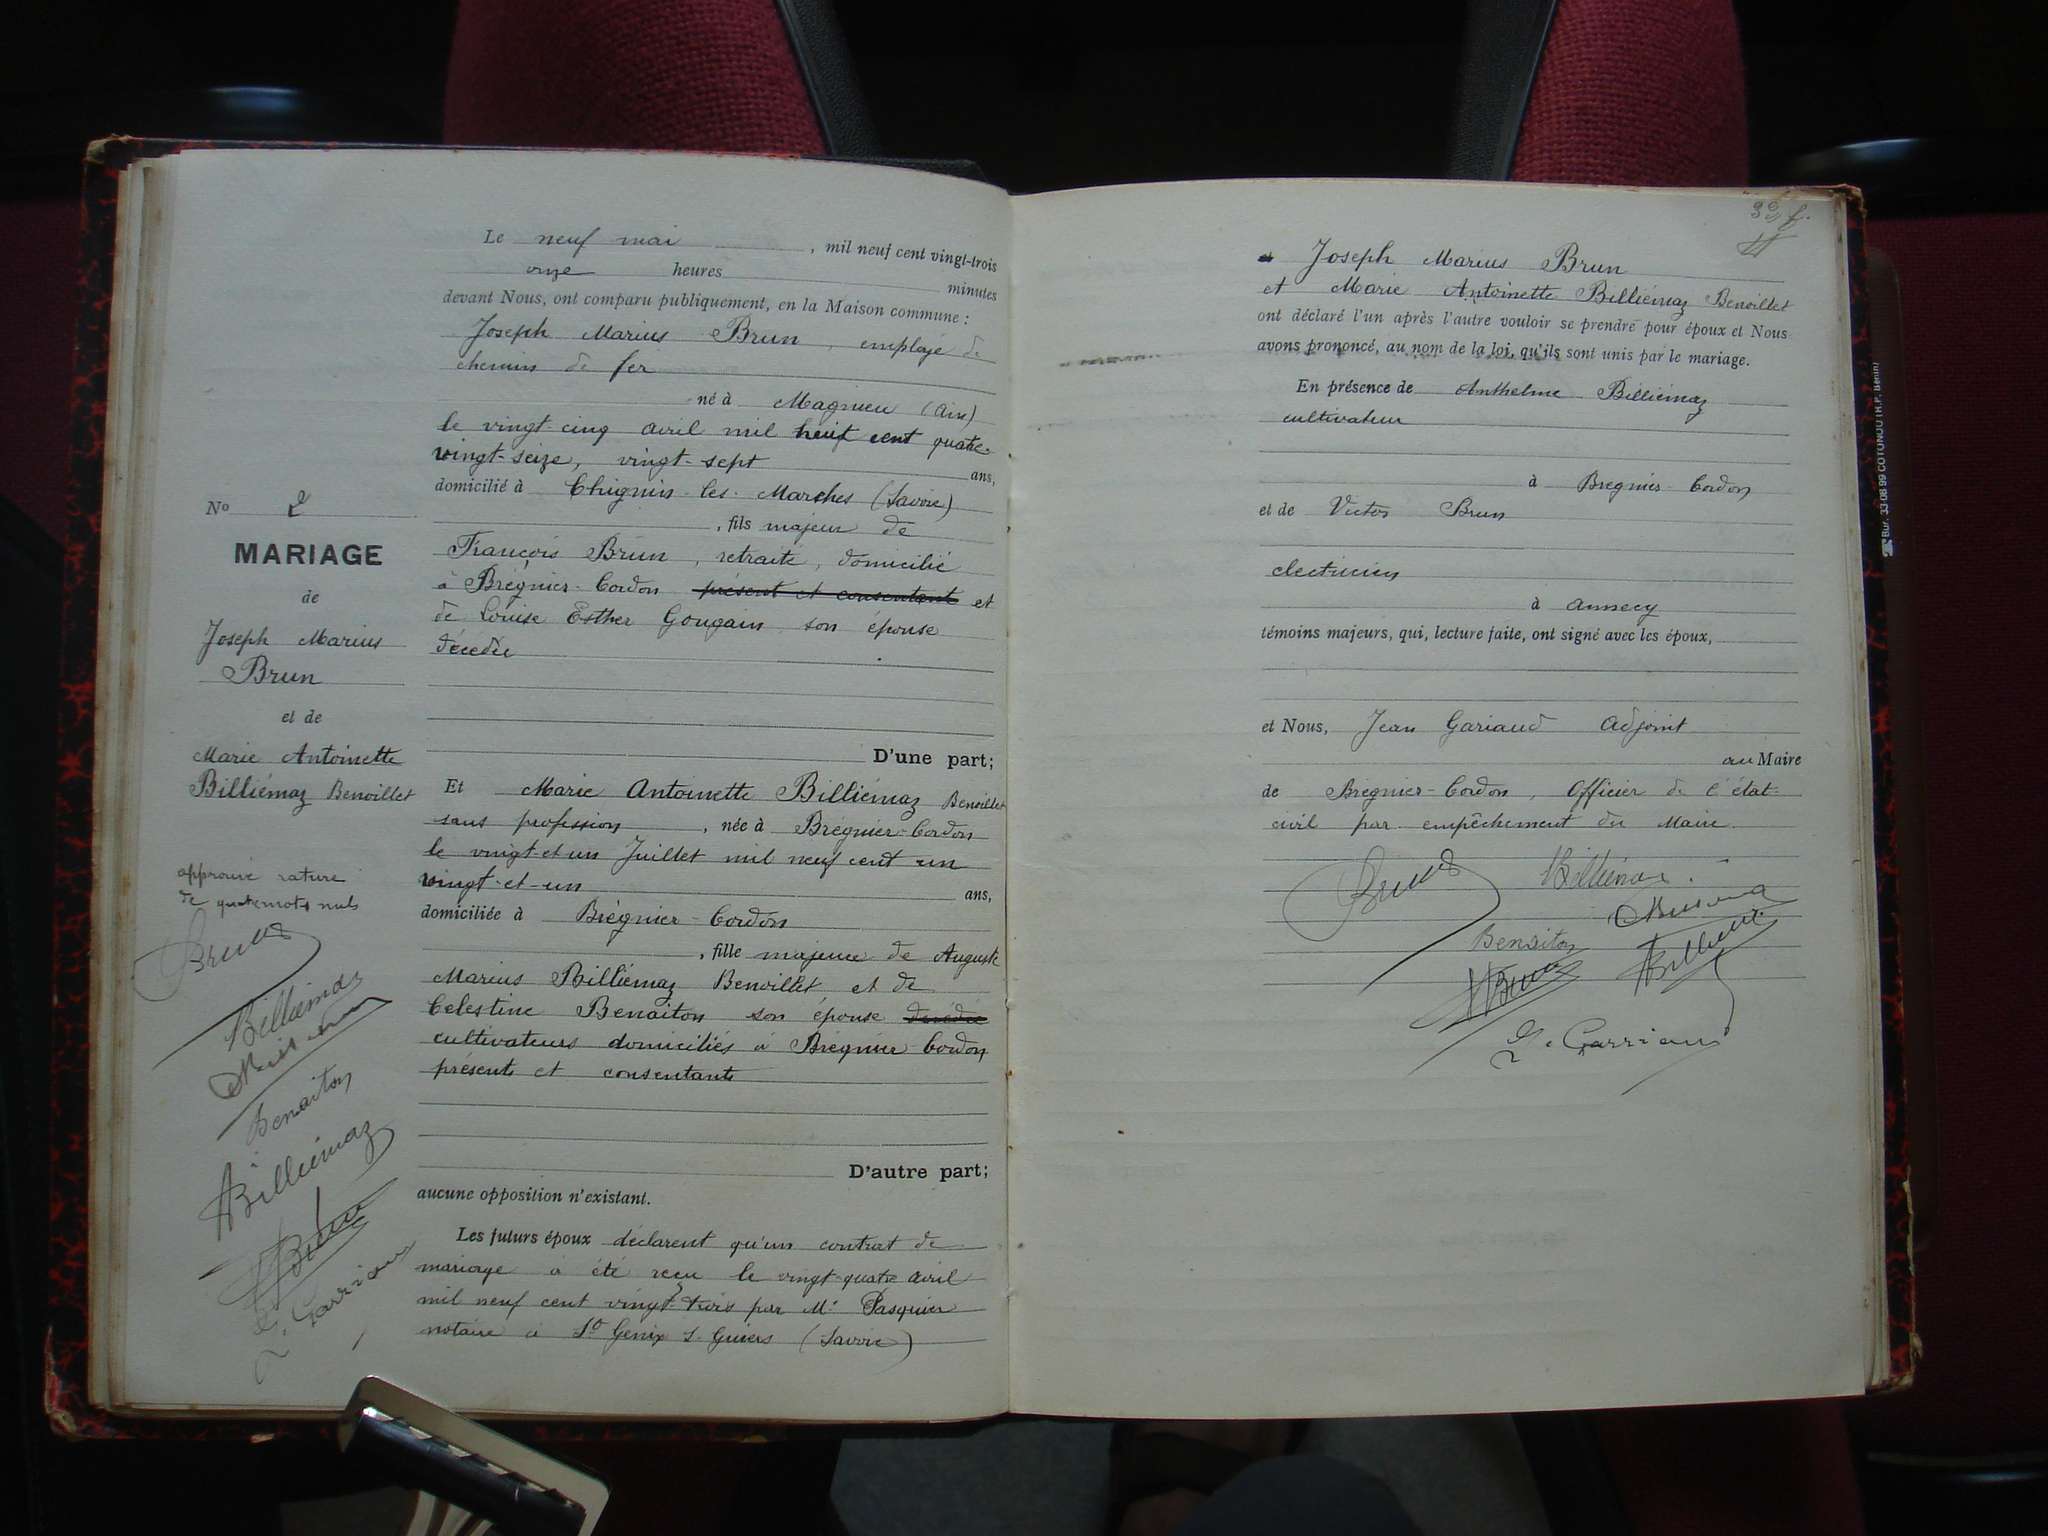 No 2
MARIAGE
de
Joseph Marius
Brun
et de
Marie Antoinette
Billiémaz Benoillet
approuvé rature
de quatre mots nuls
Brun
Billiémaz
Benaiton
ABilliémaz
VBrun
G. Garriau
Le neuf mai, mil neuf cent vingt-trois
onze heures minutes
devant Nous, ont comparu publiquement, en la Maison commune :
Joseph Marius Brun, employé de
chemins de fer
né à Magnieu (Ain)
le vingt-cinq avril mil huit cent quatre-
vingt-seize, vingt-sept ans,
domicilié à Chignin-les-Marches (Savoie)
, fils majeur de
François Brun, retraité, domicilié
à Brégnier-Cordon présent et consentant et
de Louise Esther Gougain son épouse
décédée
D'une part;
Et Marie Antoinette Billiémaz Benoillet
sans profession, née à Brégnier-Cordon
le vingt-et-un Juillet mil neuf cent un
vingt-et-un ans,
domiciliée à Brégnier-Cordon
, fille majeure de Auguste
Marius Billiémaz Benoillet et de
Celestine Benaiton son épouse décédée
cultivateurs domiciliés à Brégnier-Cordon
présents et consentants
D'autre part;
aucune opposition n'existant.
Les futurs époux déclarent qu'un contrat de
mariage a été reçu le vingt-quatre avril
mil neuf cent vingt-trois par Me Pasquier
notaire à St Genix s. Guiers (Savoie)
32 f.
et Joseph Marius Brun
et Marie Antoinette Billiémaz Benoillet
ont déclaré l'un après l'autre vouloir se prendre pour époux et Nous
avons prononcé, au nom de la loi, qu'ils sont unis par le mariage.
En présence de Anthelme Billiémaz
cultivateur
à Bregnier-Cordon
et de Victor Brun
electricien
à Annecy
témoins majeurs, qui, lecture faite, ont signé avec les époux,
et Nous, Jean Gariaud Adjoint
au Maire
de Brégnier-Cordon, Officier de l'état-
civil par empêchement du Maire
Brun Billiémaz
Benaiton ABilliémaz
VBrun
G. Garriau
Bur. 33-08-99 COTONOU (R.P. Bénin)